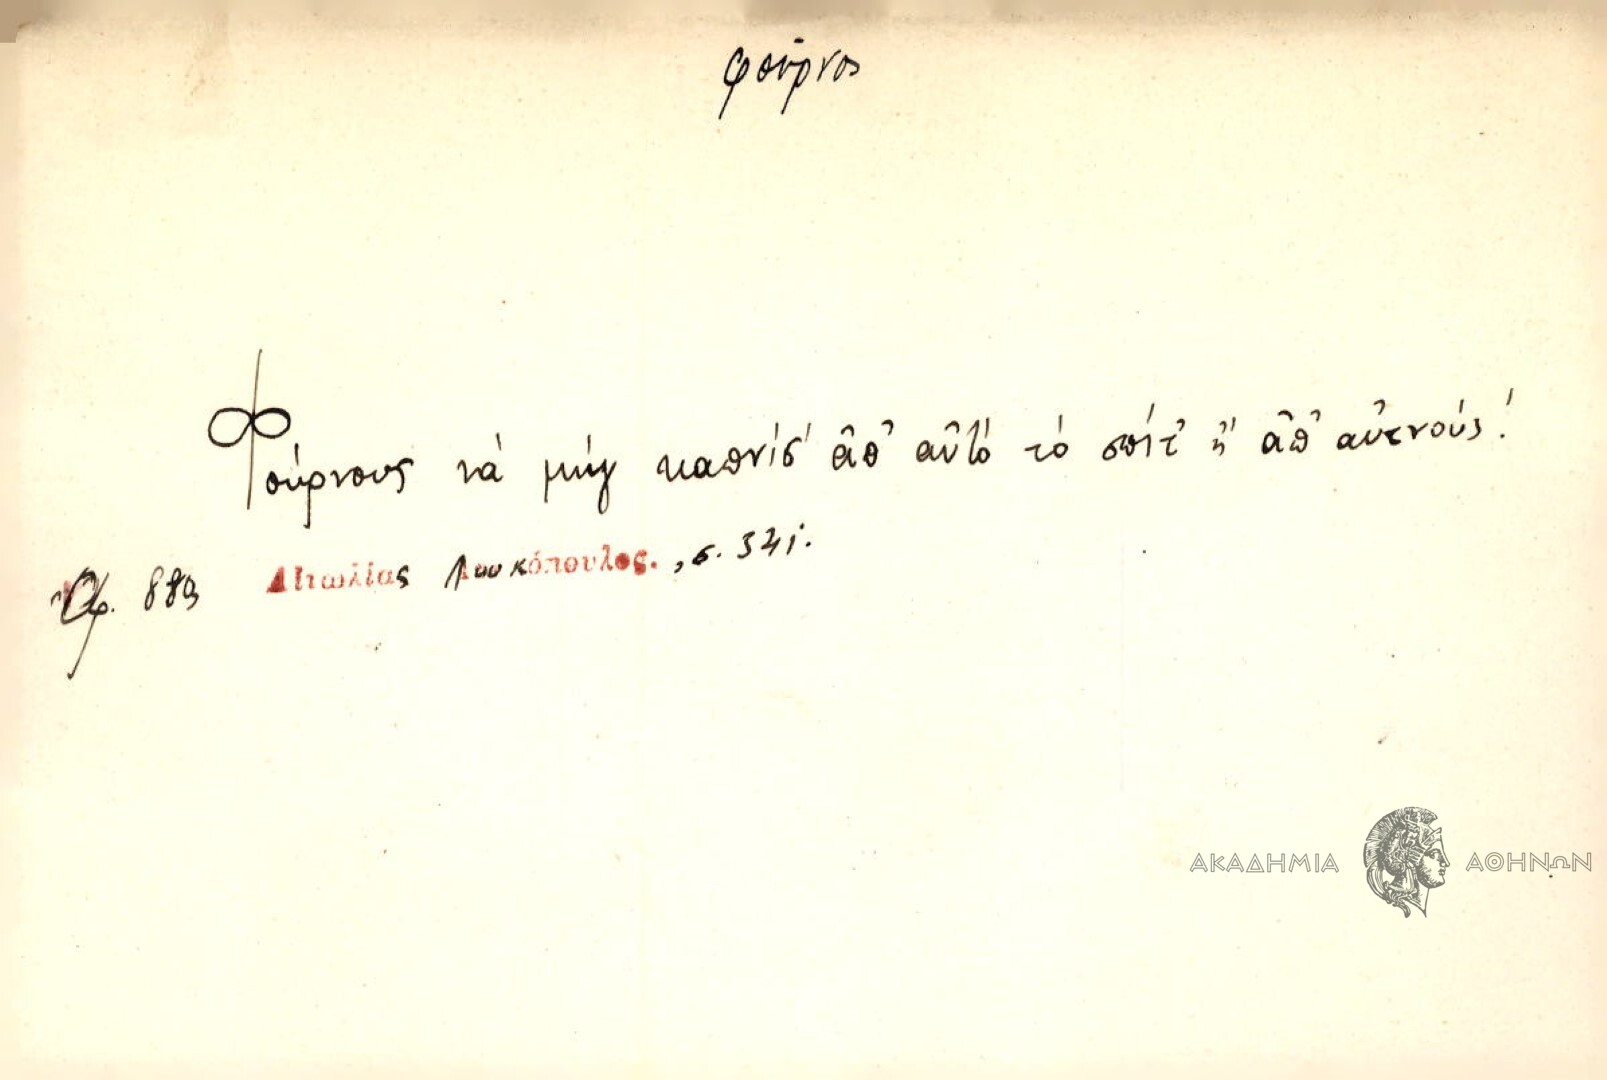 φούρνος
Φούρνους νὰ μὴγ καπνίσ' ἀπ' αὐτὸ τὸ σπίτ' ἢ ἀπ' αὐτνούς!
Ἀρ. 889 Αἰτωλίας Λουκόπουλος. , σ. 341.
ΑΚΑΔΗΜΙΑ ΑΘΗΝΩΝ